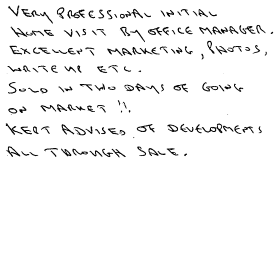 VERY PROFESSIONAL INITIAL
HOME VISIT BY OFFICE MANAGER.
EXCELLENT MARKETING, PHOTOS,
WRITE UP ETC.
SOLD IN TWO DAYS OF GOING
ON MARKET !!.
KEPT ADVISED OF DEVELOPMENTS
ALL THROUGH SALE.